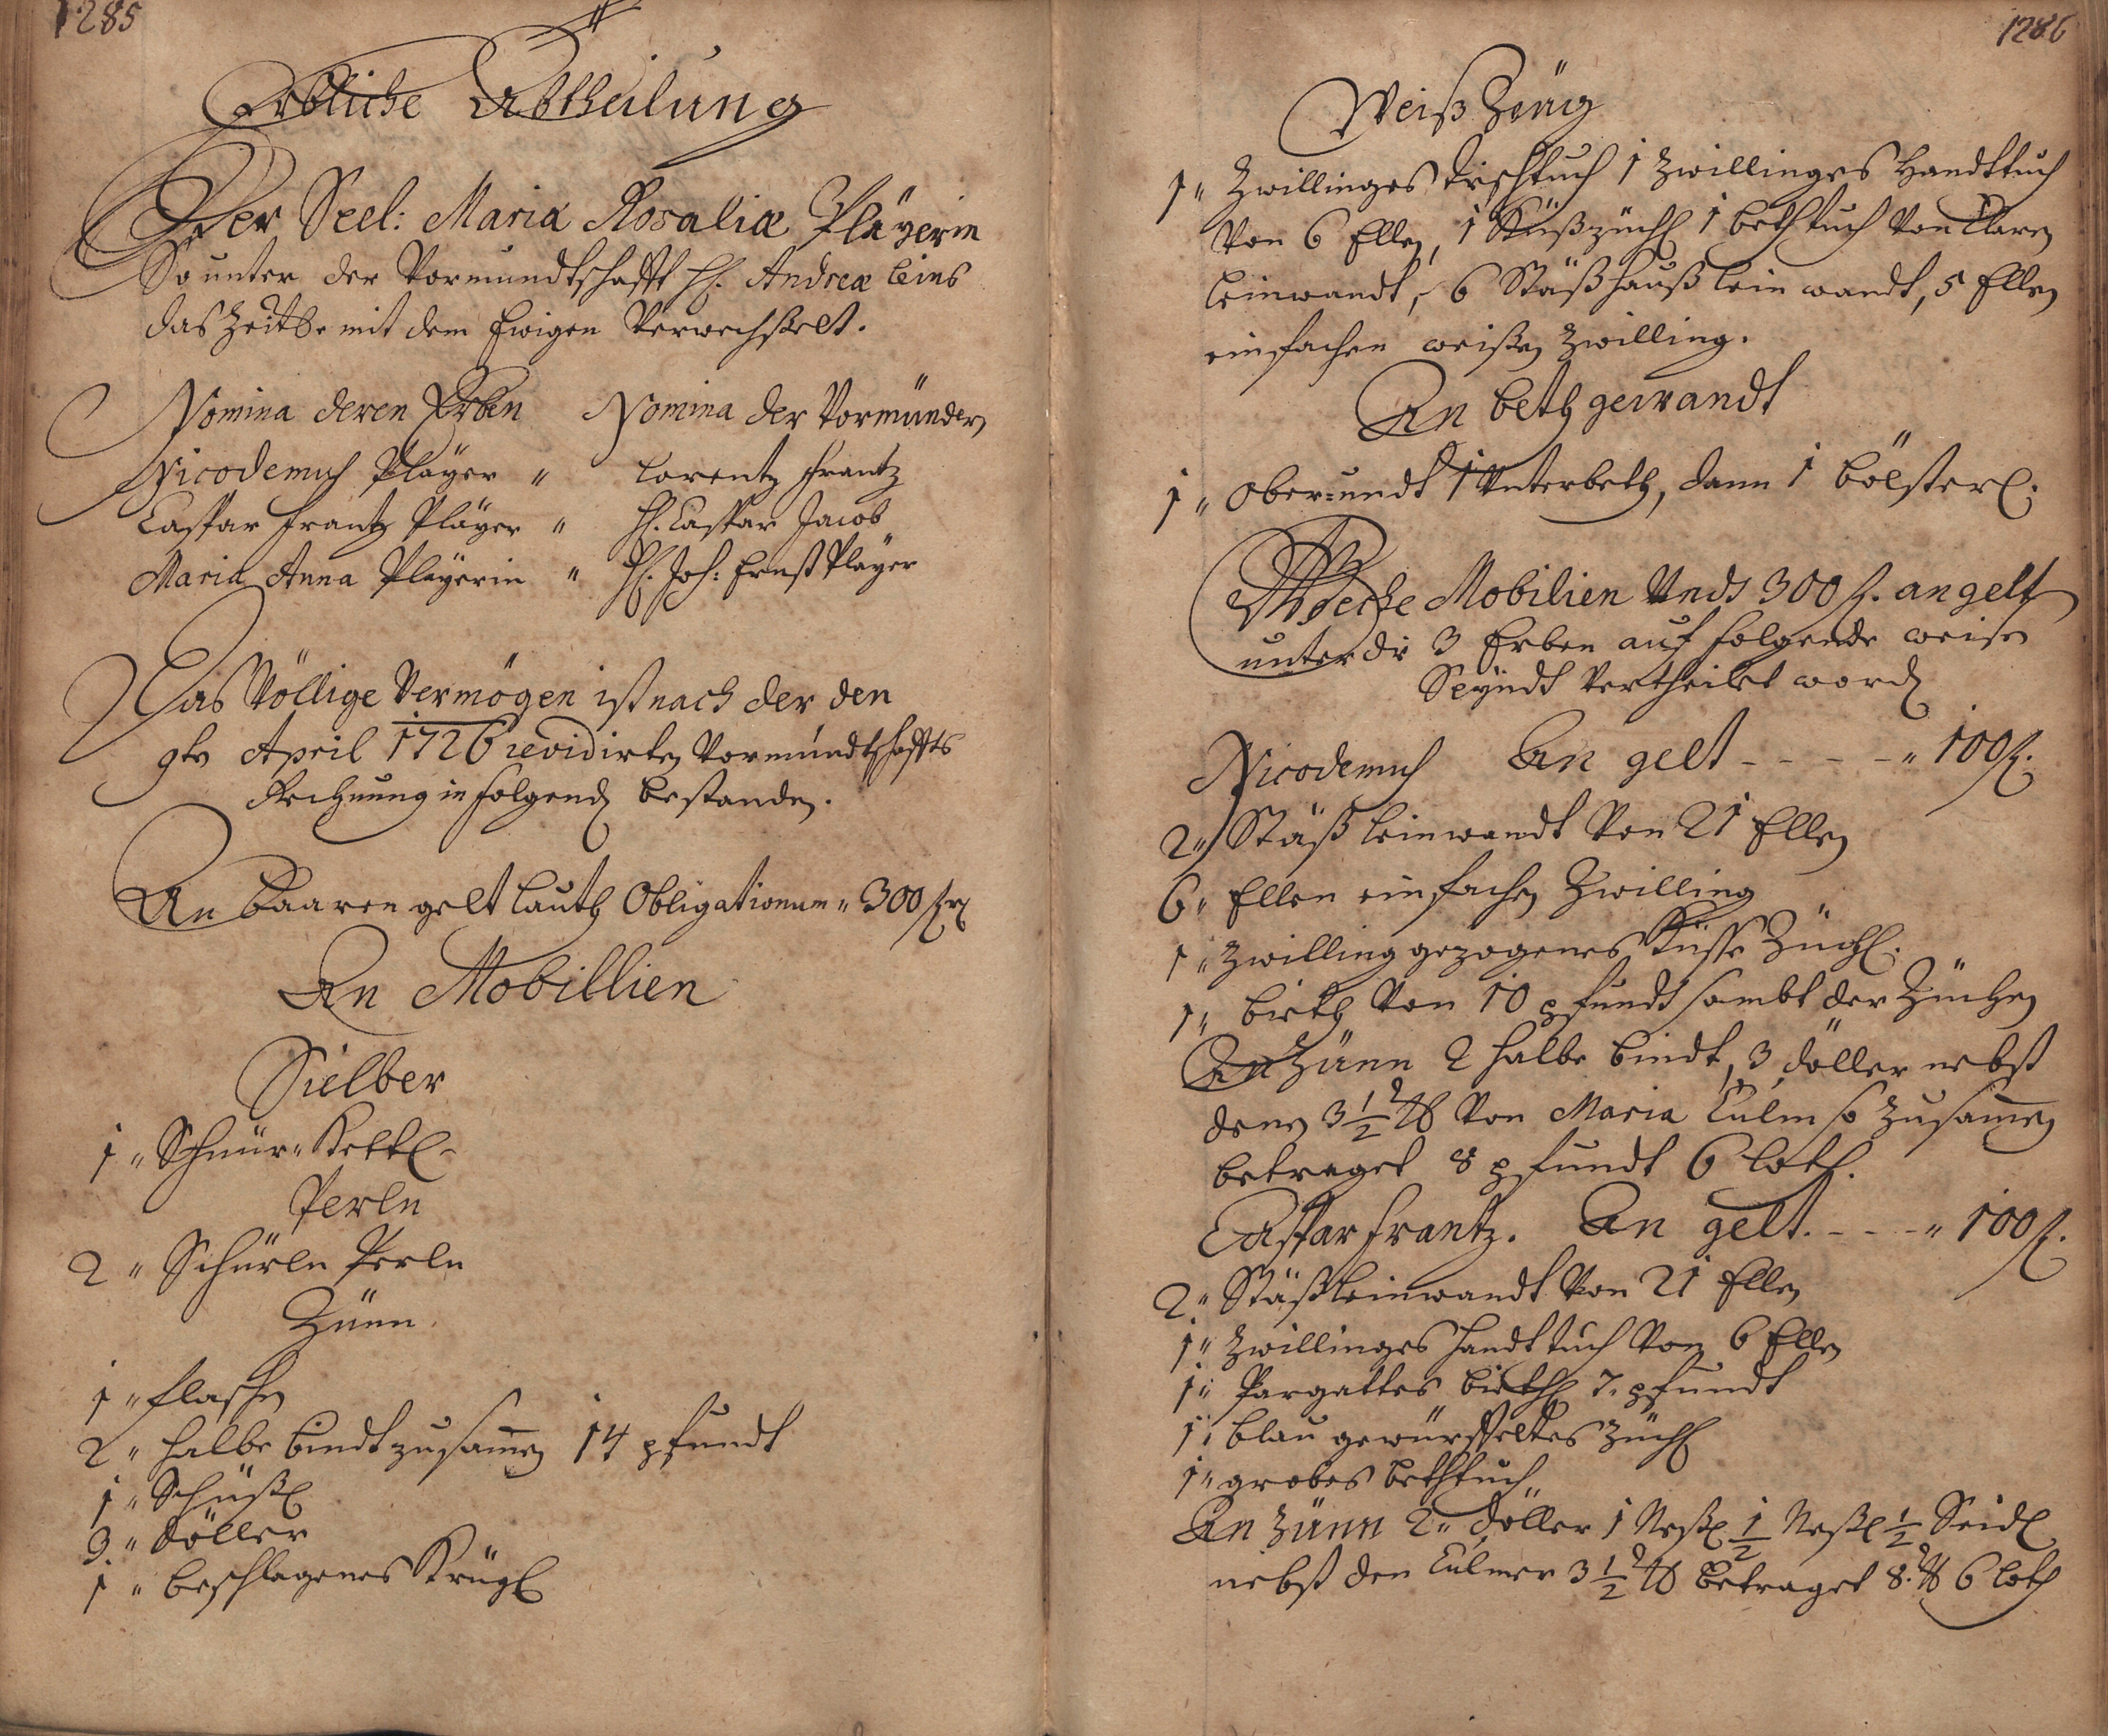 1285
Erbliche Abtheilung
Der Seel: Mariæ Rosaliæ Pläyerin
So unter der Vormundtschafft H. Andreæ Leins
das Zeitl. mit dem Ewigen Verwechselt.
Nomina deren Erben Nomina der Vormünder
Nicodemus Pläyer " Lorentz Frantz
Caspar Frantz Pläyer " H. Caspar Jacob
Maria Anna Pläyerin " H. Joh: Ernst Pläyer
Das Völlige Vermögen ist nach der den
9ten April 1726 revidirten Vormundtschaffts
Rechnung in folgend bestanden.
An Baaren gelt lauth Obligationum " 300 fl
An Mobillien
Sielber
1 " Schnür " Kettl
Perln
2 " Schürln Perln
Zünn
1 " flaschen
2 " halbe bindt zusammen 14 pfundt
1 " Schüßl
3 " Döller
1 " beschlagenes Krügl
1286
Weiß Zeüg
1 " Zwillinges Tischtuch 1 Zwillinges Handttuch
Von 6 Ellen, 1 Küßzüchl 1 bethtuch Von klaren
leinwandt, 6 Stäß hauß leinwandt, 5 Ellen
einfachen weißen Zwilling.
An beth gewandt
1 " Ober= undt 1 Unterbeth, dann 1 bölsterl.
Welche Mobilien Undt 300 f. an gelt
unter die 3 Erben auf folgende weisen
Seyndt Vertheilet word
Nicodemus An gelt - - - - - " 100 f.
2 " Stäß leinwandt Von 21 Ellen
6 " Ellen einfachen Zwilling
1 " Zwilling gezogenes Küsse Züchl.
1 " Beth Von 10 pfundt sambt der Züchen
An Zünn 2 halbe bindt, 3 döller nebst
denen 3 1/2 ℔ Von Maria Culm so zusammen
betraget 8 pfundt 6 loth.
Caspar Frantz. An gelt. - - - - " 100 f.
2 " Stäß leinwandt Von 21 Ellen
1 " Zwillinges handttuch Von 6 Ellen
1 " Pargattes bethl 7. pfundt
1 " blau gewürffeltes Züchl
1 " grobes bethtuch
An Zünn 2 " döller 1 Neßl 1/2 Neßl 1/2 Seidl
nebst den Culmer 3 1/2 ℔ betraget 8. ℔ 6 loth